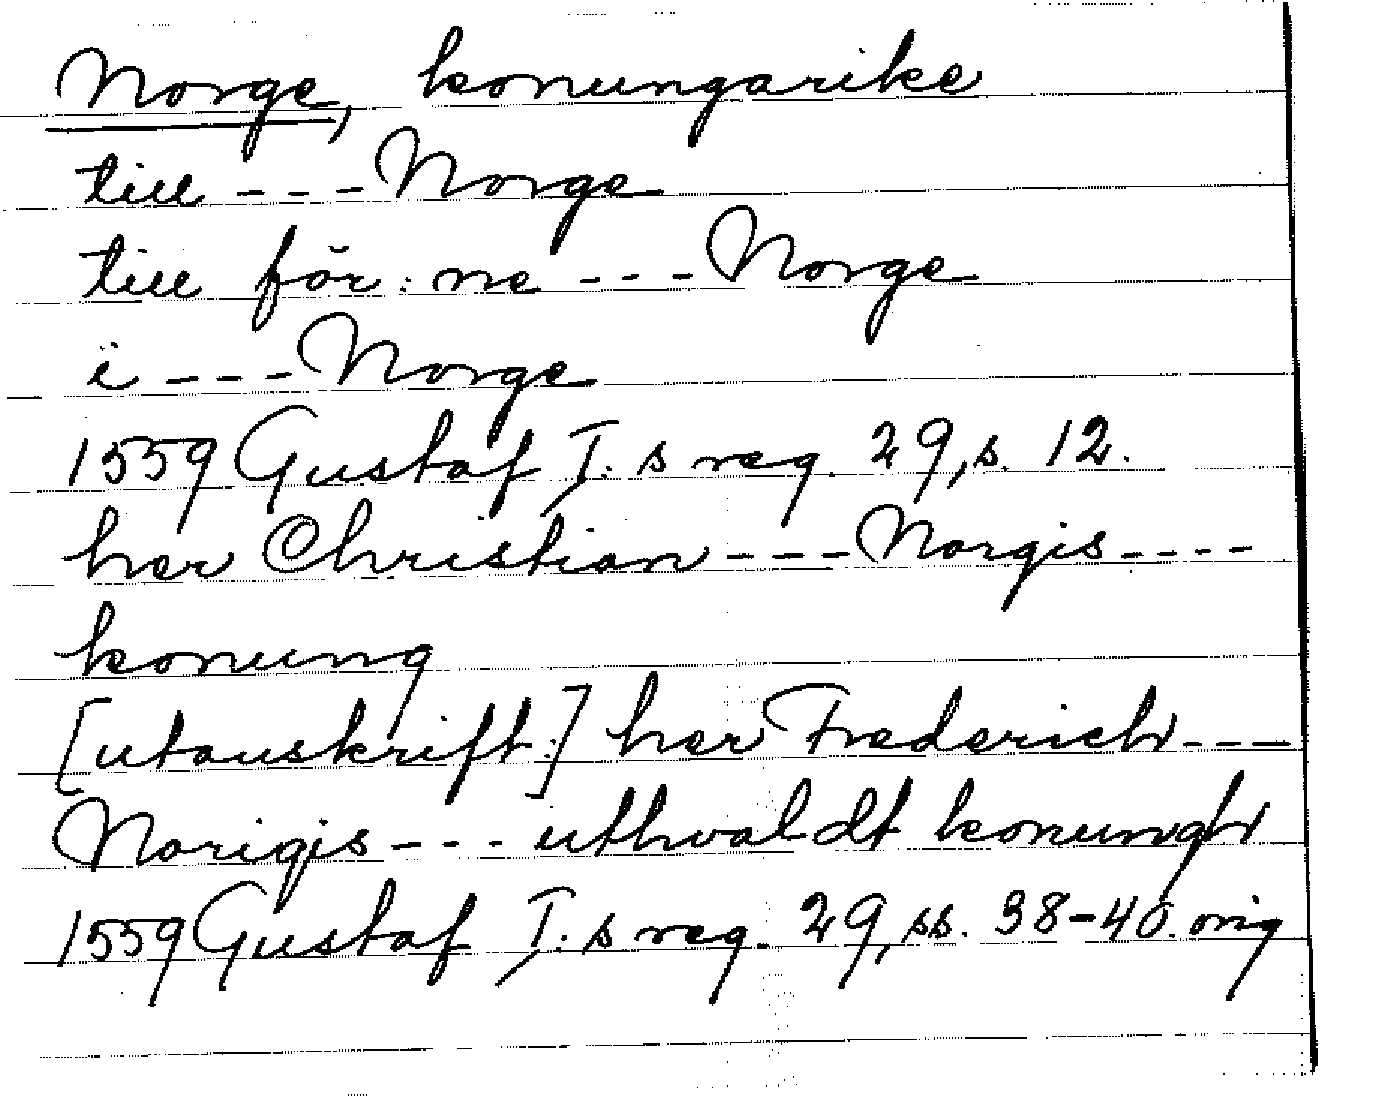 Norge, konungarike
till --- Norge
till för:ne --- Norge
i --- Norge
1559 Gustaf I:s reg. 29, s. 12.
her Christian --- Norgis ----
konung
[utanskrift:] her Frederich ---
Norigis --- uthvaldt konungh
1559 Gustaf I:s reg. 29, ss. 38-40. orig